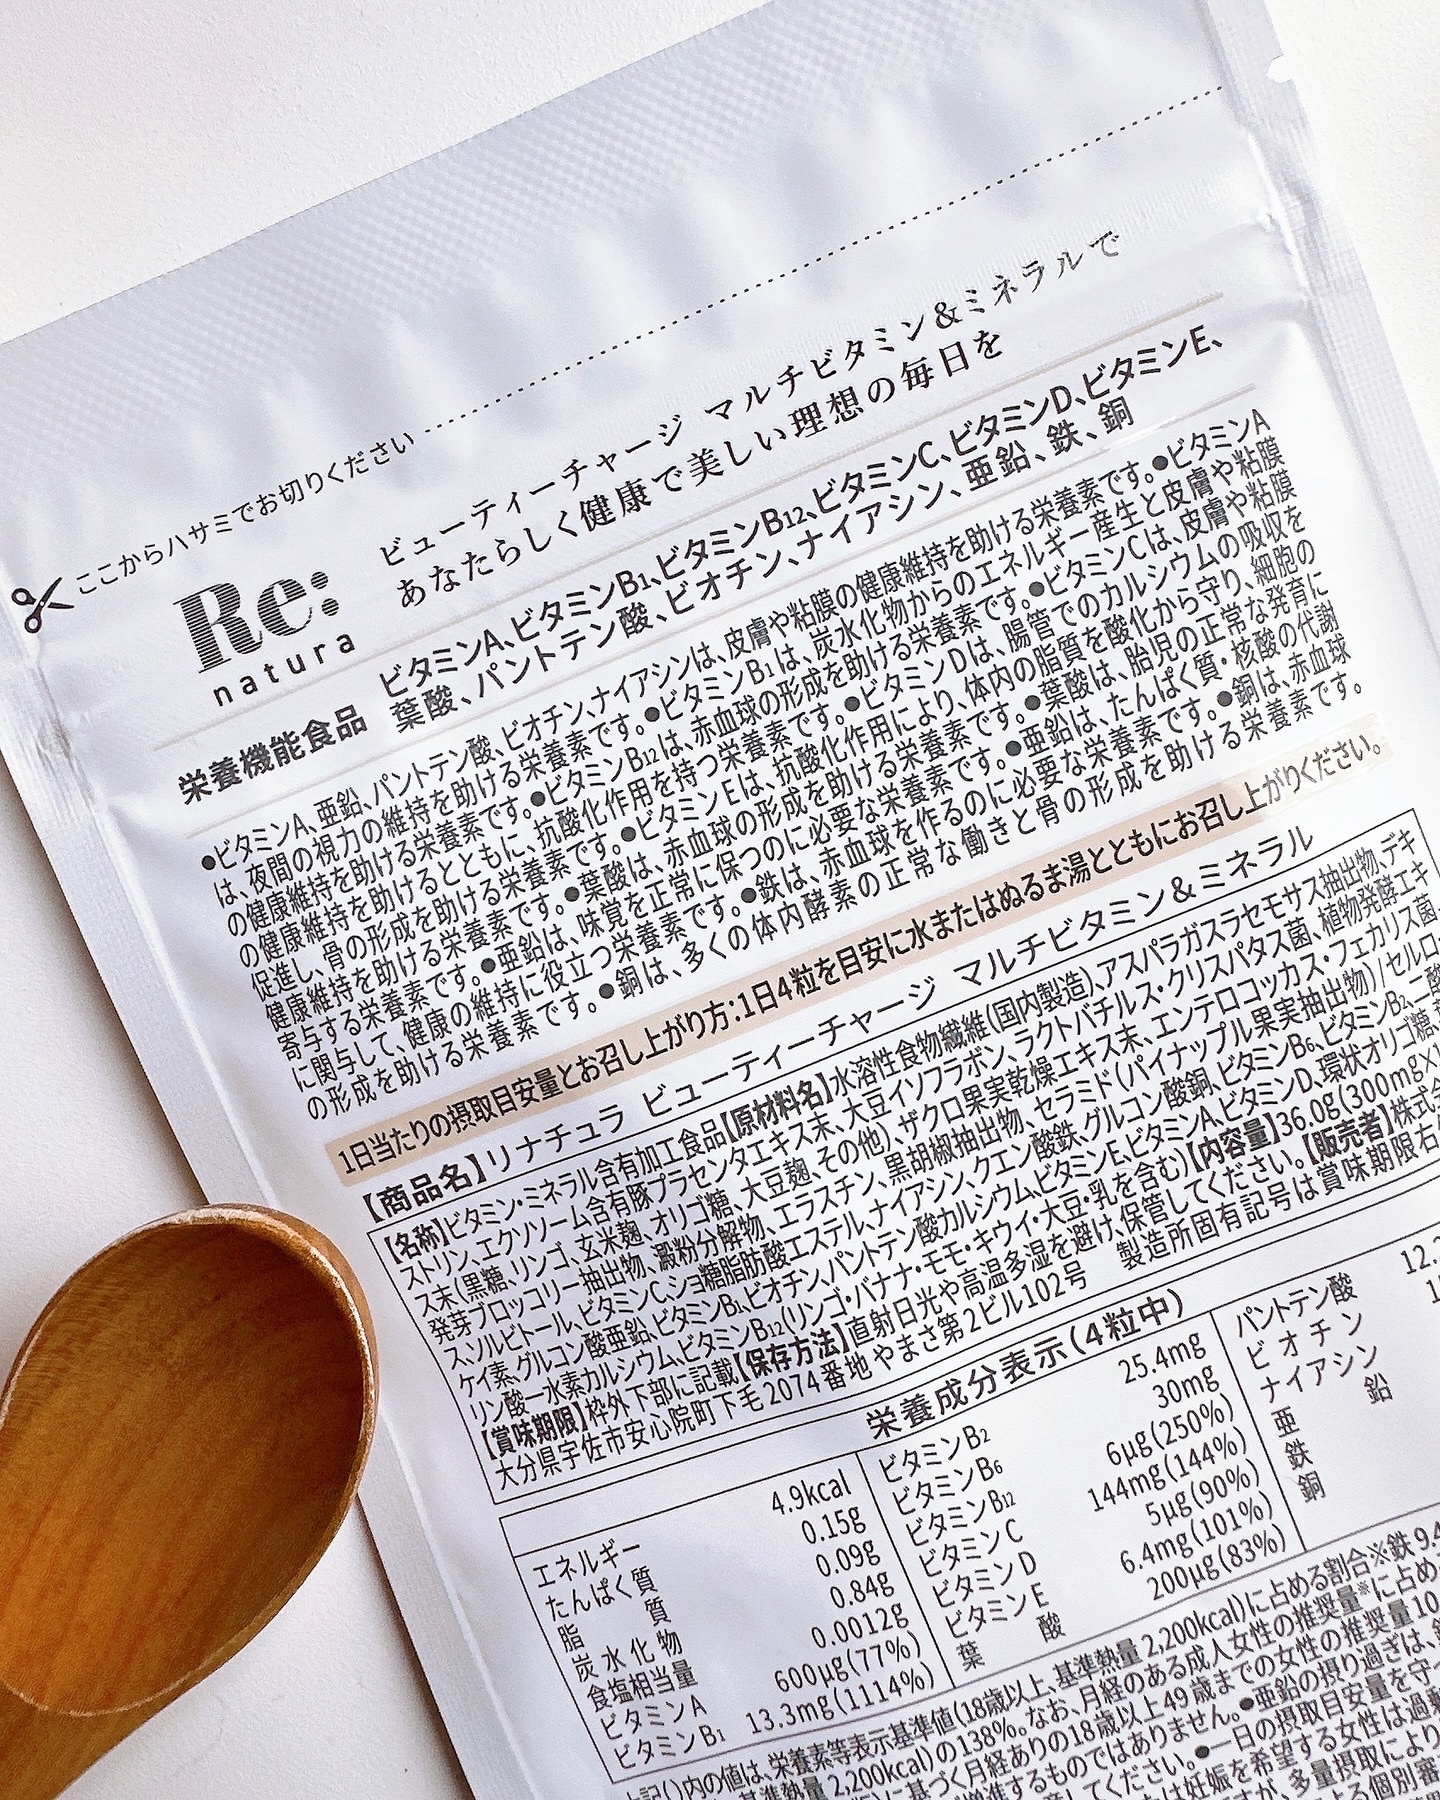 ここからハサミでお切りください
Re:
natura
ビューティーチャージ マルチビタミン&ミネラルで
あなたらしく健康で美しい理想の毎日を
栄養機能食品
ビタミンA、ビタミンB1、ビタミンB12、ビタミンC、ビタミンD、ビタミンE、
葉酸、パントテン酸、ビオチン、ナイアシン、亜鉛、鉄、銅
●ビタミンA、亜鉛、パントテン酸、ビオチン、ナイアシンは、皮膚や粘膜の健康維持を助ける栄養素です。●ビタミンA
は、夜間の視力の維持を助ける栄養素です。●ビタミンB1は、炭水化物からのエネルギー産生と皮膚や粘膜
の健康維持を助ける栄養素です。●ビタミンB12は、赤血球の形成を助ける栄養素です。●ビタミンCは、皮膚や粘膜
の健康維持を助けるとともに、抗酸化作用を持つ栄養素です。●ビタミンDは、腸管でのカルシウムの吸収を
促進し、骨の形成を助ける栄養素です。●ビタミンEは、抗酸化作用により、体内の脂質を酸化から守り、細胞の
健康維持を助ける栄養素です。●葉酸は、赤血球の形成を助ける栄養素です。●葉酸は、胎児の正常な発育に
寄与する栄養素です。●亜鉛は、味覚を正常に保つのに必要な栄養素です。●亜鉛は、たんぱく質・核酸の代謝
に関与して、健康の維持に役立つ栄養素です。●鉄は、赤血球を作るのに必要な栄養素です。●銅は、赤血球
の形成を助ける栄養素です。●銅は、多くの体内酵素の正常な働きと骨の形成を助ける栄養素です。
1日当たりの摂取目安量とお召し上がり方:1日4粒を目安に水またはぬるま湯とともにお召し上がりください。
【商品名】リナチュラ ビューティーチャージ マルチビタミン&ミネラル
【名称】ビタミン・ミネラル含有加工食品【原材料名】水溶性食物繊維(国内製造)、アスパラガスラセモサス抽出物、デキ
ストリン、エクソソーム含有豚プラセンタエキス末、大豆イソフラボン、ラクトバチルス・クリスパタス菌、植物発酵エキ
ス末(黒糖、リンゴ、玄米麹、オリゴ糖、大豆麹、その他)、ザクロ果実乾燥エキス末、エンテロコッカス・フェカリス菌、
発芽ブロッコリー抽出物、澱粉分解物、エラスチン、黒胡椒抽出物、セラミド(パイナップル果実抽出物)/セルロー
ス、ソルビトール、ビタミンC、ショ糖脂肪酸エステル、ナイアシン、クエン酸鉄、グルコン酸銅、ビタミンB6、ビタミンB2、二酸
ケイ素、グルコン酸亜鉛、ビタミンB1、ビオチン、パントテン酸カルシウム、ビタミンE、ビタミンA、ビタミンD、環状オリゴ糖、
リン酸一水素カルシウム、ビタミンB12(リンゴ・バナナ・モモ・キウイ・大豆・乳を含む)【内容量】36.0g(300mg×
【賞味期限】枠外下部に記載【保存方法】直射日光や高温多湿を避け、保管してください。【販売者】株式会
大分県宇佐市安心院町下毛2074番地 やまさ第2ビル102号 製造所固有記号は賞味期限右
栄養成分表示(4粒中)
エネルギー 4.9kcal
たんぱく質 0.15g
脂質 0.09g
炭水化物 0.84g
食塩相当量 0.0012g
ビタミンA 600μg(77%)
ビタミンB1 13.3mg(1114%)
ビタミンB2 25.4mg
ビタミンB6 30mg
ビタミンB12 6μg(250%)
ビタミンC 144mg(144%)
ビタミンD 5μg(90%)
ビタミンE 6.4mg(101%)
葉酸 200μg(83%)
パントテン酸 12.
ビオチン
ナイアシン
亜鉛
鉄
銅
上記()内の値は、栄養素等表示基準値(18歳以上、基準熱量2,200kcal)に占める割合※鉄9.4
基準熱量2,200kcal)の138%。なお、月経のある成人女性の推奨量※に占め
に基づく月経ありの18歳以上49歳までの女性の推奨量10
増進するものではありません。●亜鉛の摂り過ぎは、
してください。●一日の摂取目安量を守
は妊娠を希望する女性は過
が、多量摂取により
よる個別審